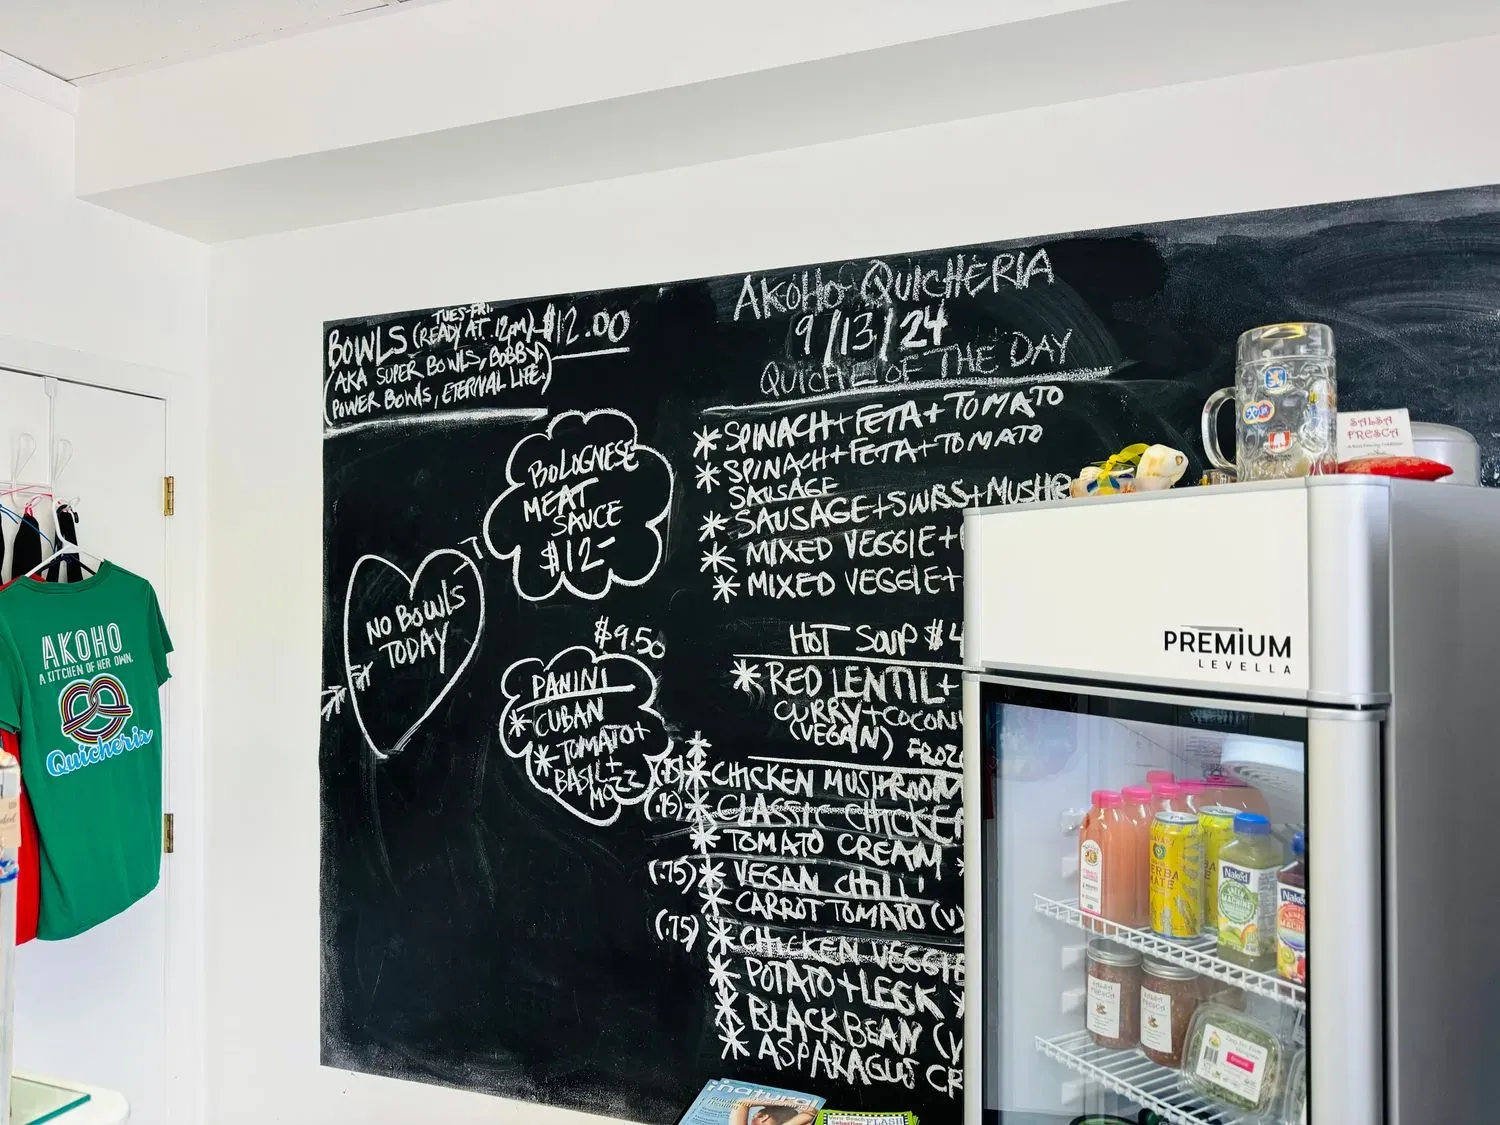 TUES-FRI.
BOWLS (READY AT 12PM) $12.00
(AKA SUPER BOWLS, BOBBY,
POWER BOWLS, ETERNAL LIFE.)
BOLOGNESE
MEAT
SAUCE
$12-
NO BOWLS
TODAY
$9.50
PANINI
* CUBAN
* TOMATO+
BASIL+
MOZZ
AKOHO QUICHERIA
9/13/24
QUICHE OF THE DAY
* SPINACH+FETA+TOMATO
* SPINACH+FETA+TOMATO
SAUSAGE
* SAUSAGE+SWISS+MUSHR
* MIXED VEGGIE+
* MIXED VEGGIE+
HOT SOUP $4
* RED LENTIL+
CURRY+COCON
(VEGAN)
FROZ
(.75) * CHICKEN MUSHROOM
(.75) * CLASSIC CHICKEN
* TOMATO CREAM *
(.75) * VEGAN CHILI
* CARROT TOMATO (V)
(.75) * CHICKEN VEGGIE
* POTATO+LEEK *
* BLACKBEAN (V
* ASPARAGUS CR
AKOHO
A KITCHEN OF HER OWN.
Quicheria
SALSA
FRESCA
PREMIUM
LEVELLA
YERBA
MATE
Naked
GREEN
MACHINE
SALSA
FRESCA
SALSA
FRESCA
natural
Vero Beach
Sebastian
FLASH